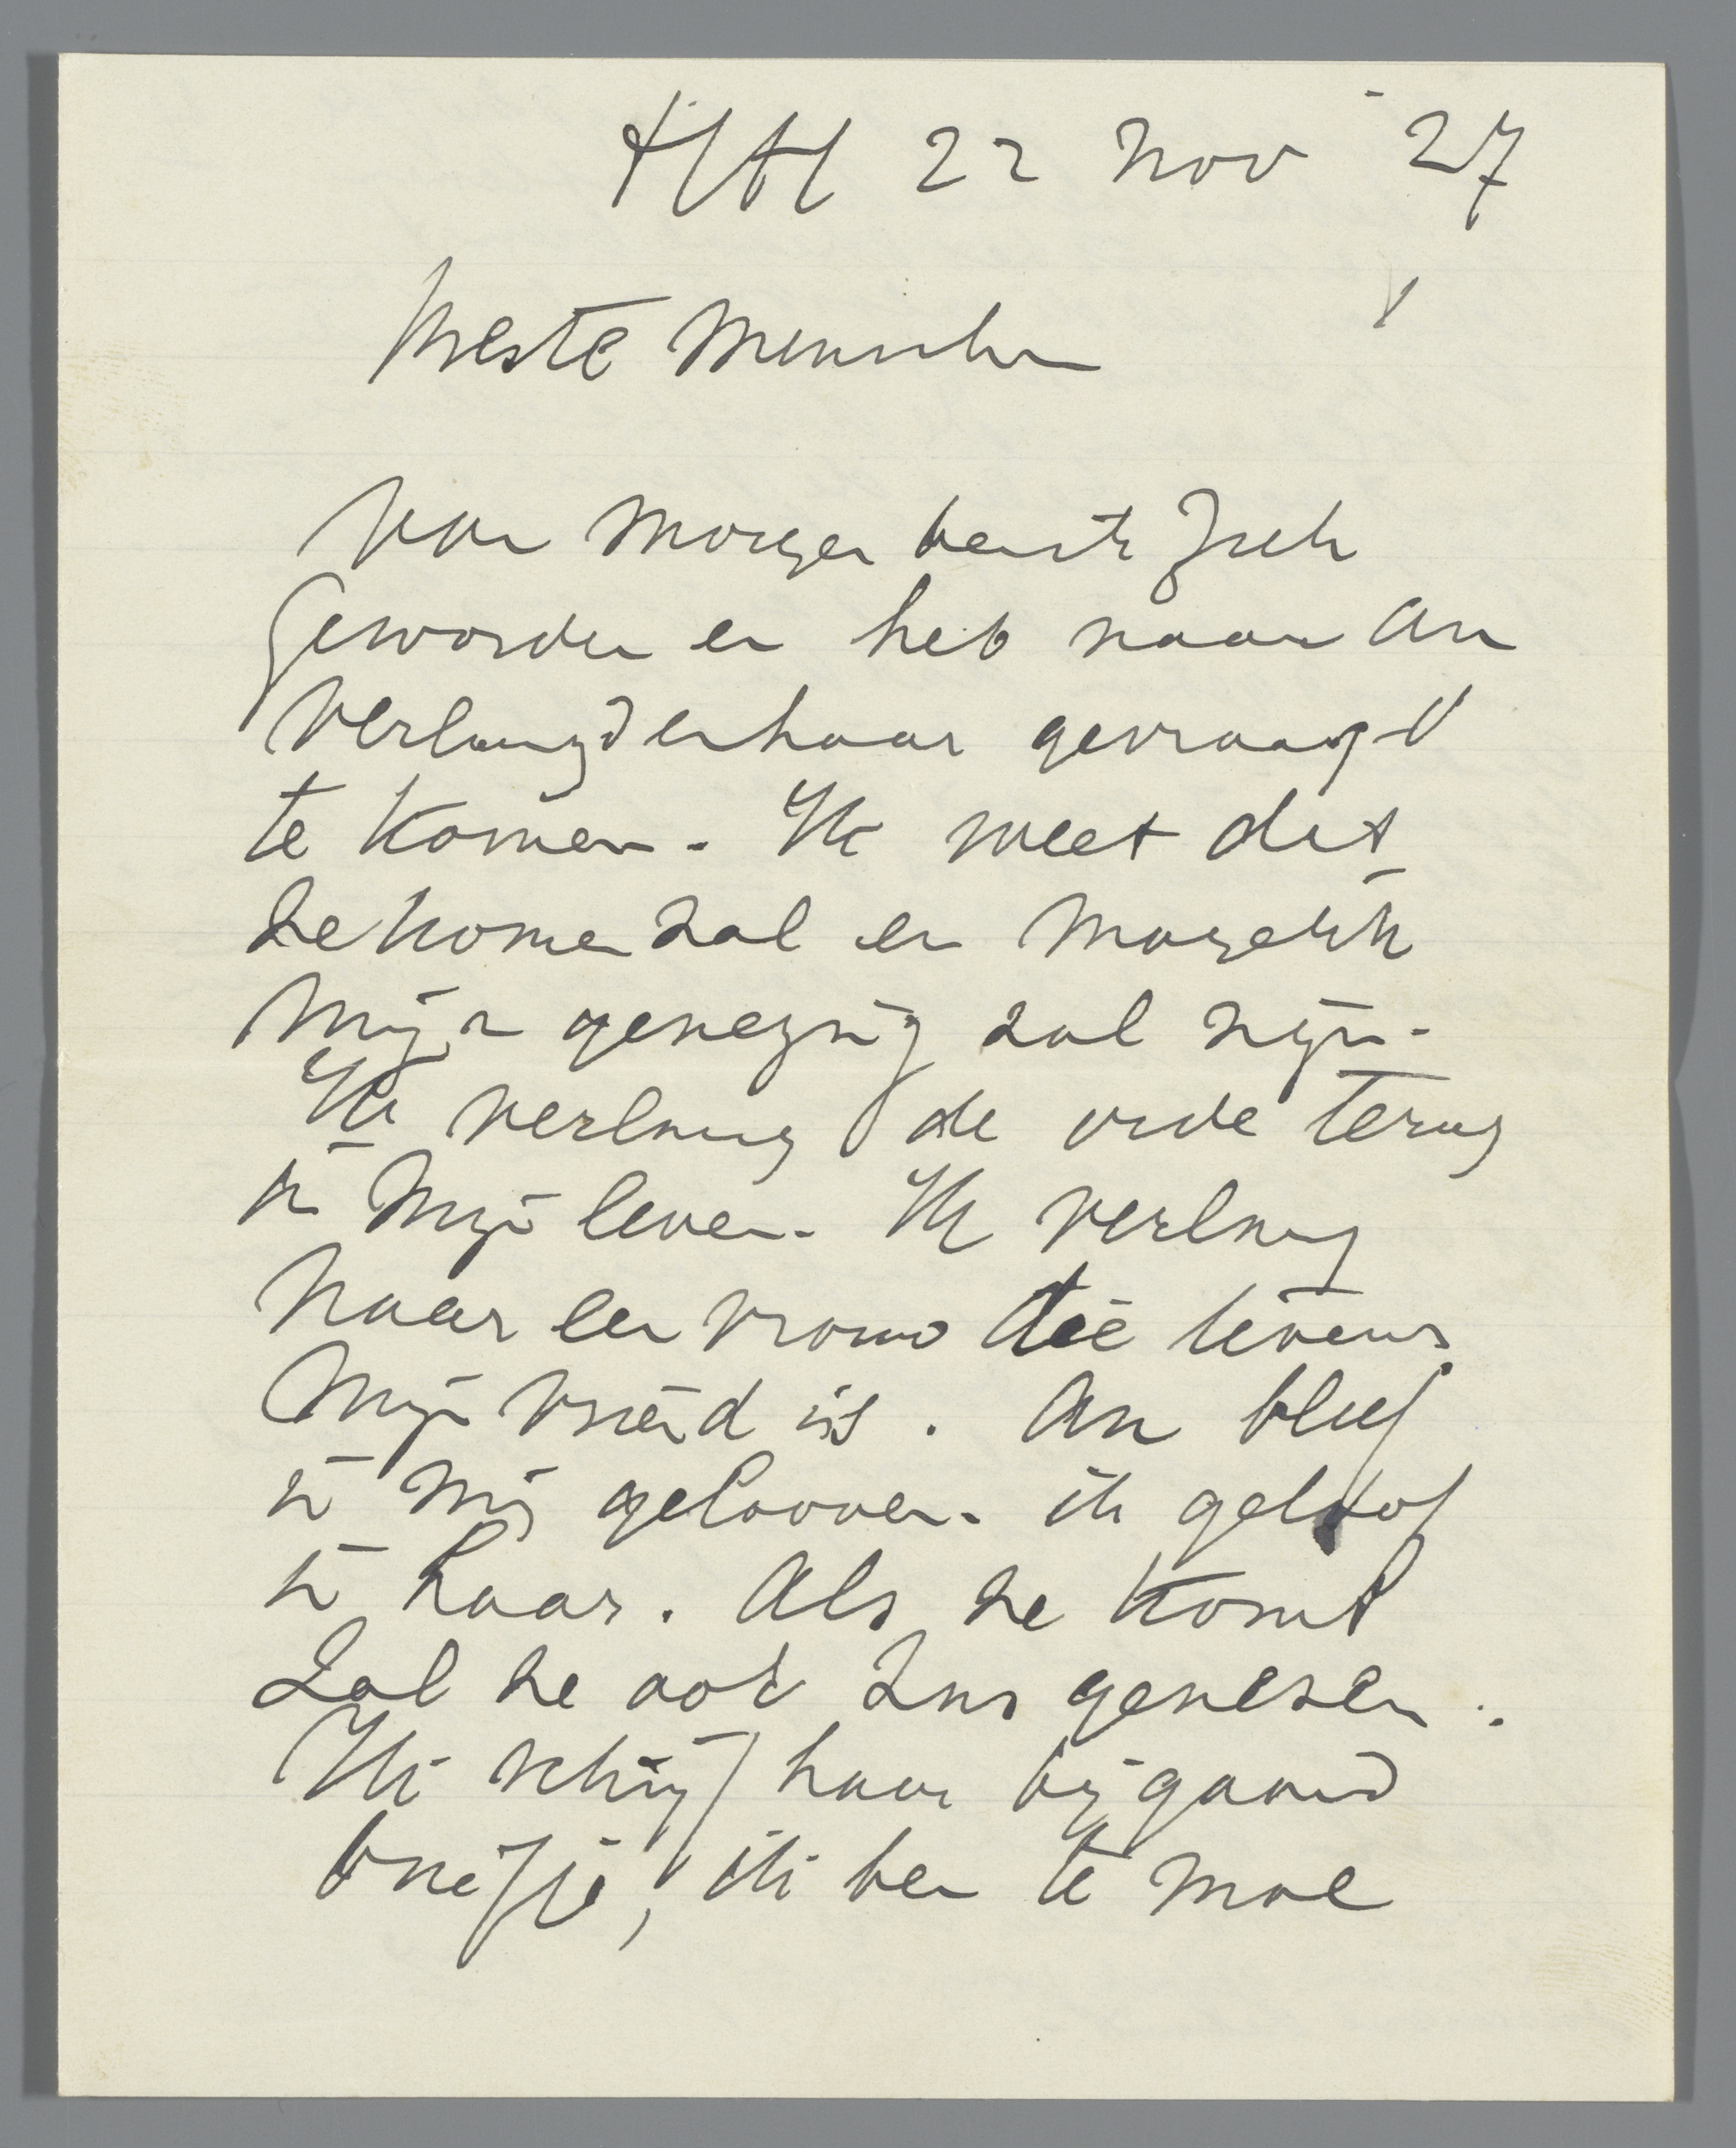 HH 22 Nov '27
Beste Menschen
Van morgen bent ziek
geworden en heb naar An
verlangd en haar gevraagd
te komen. Ik weet dat
ze komen zal en mogelijk
mijn genezing zal zijn.
Ik verlang de orde terug
in mijn leven. Ik verlang
naar een vrouw die tevens
mijn vriend is. An bleef
in mij gelooven. ik geloof
in haar. Als ze komt
zal ze ook Zus genezen.
Ik schrijf haar bijgaand
briefje, ik ben te moe